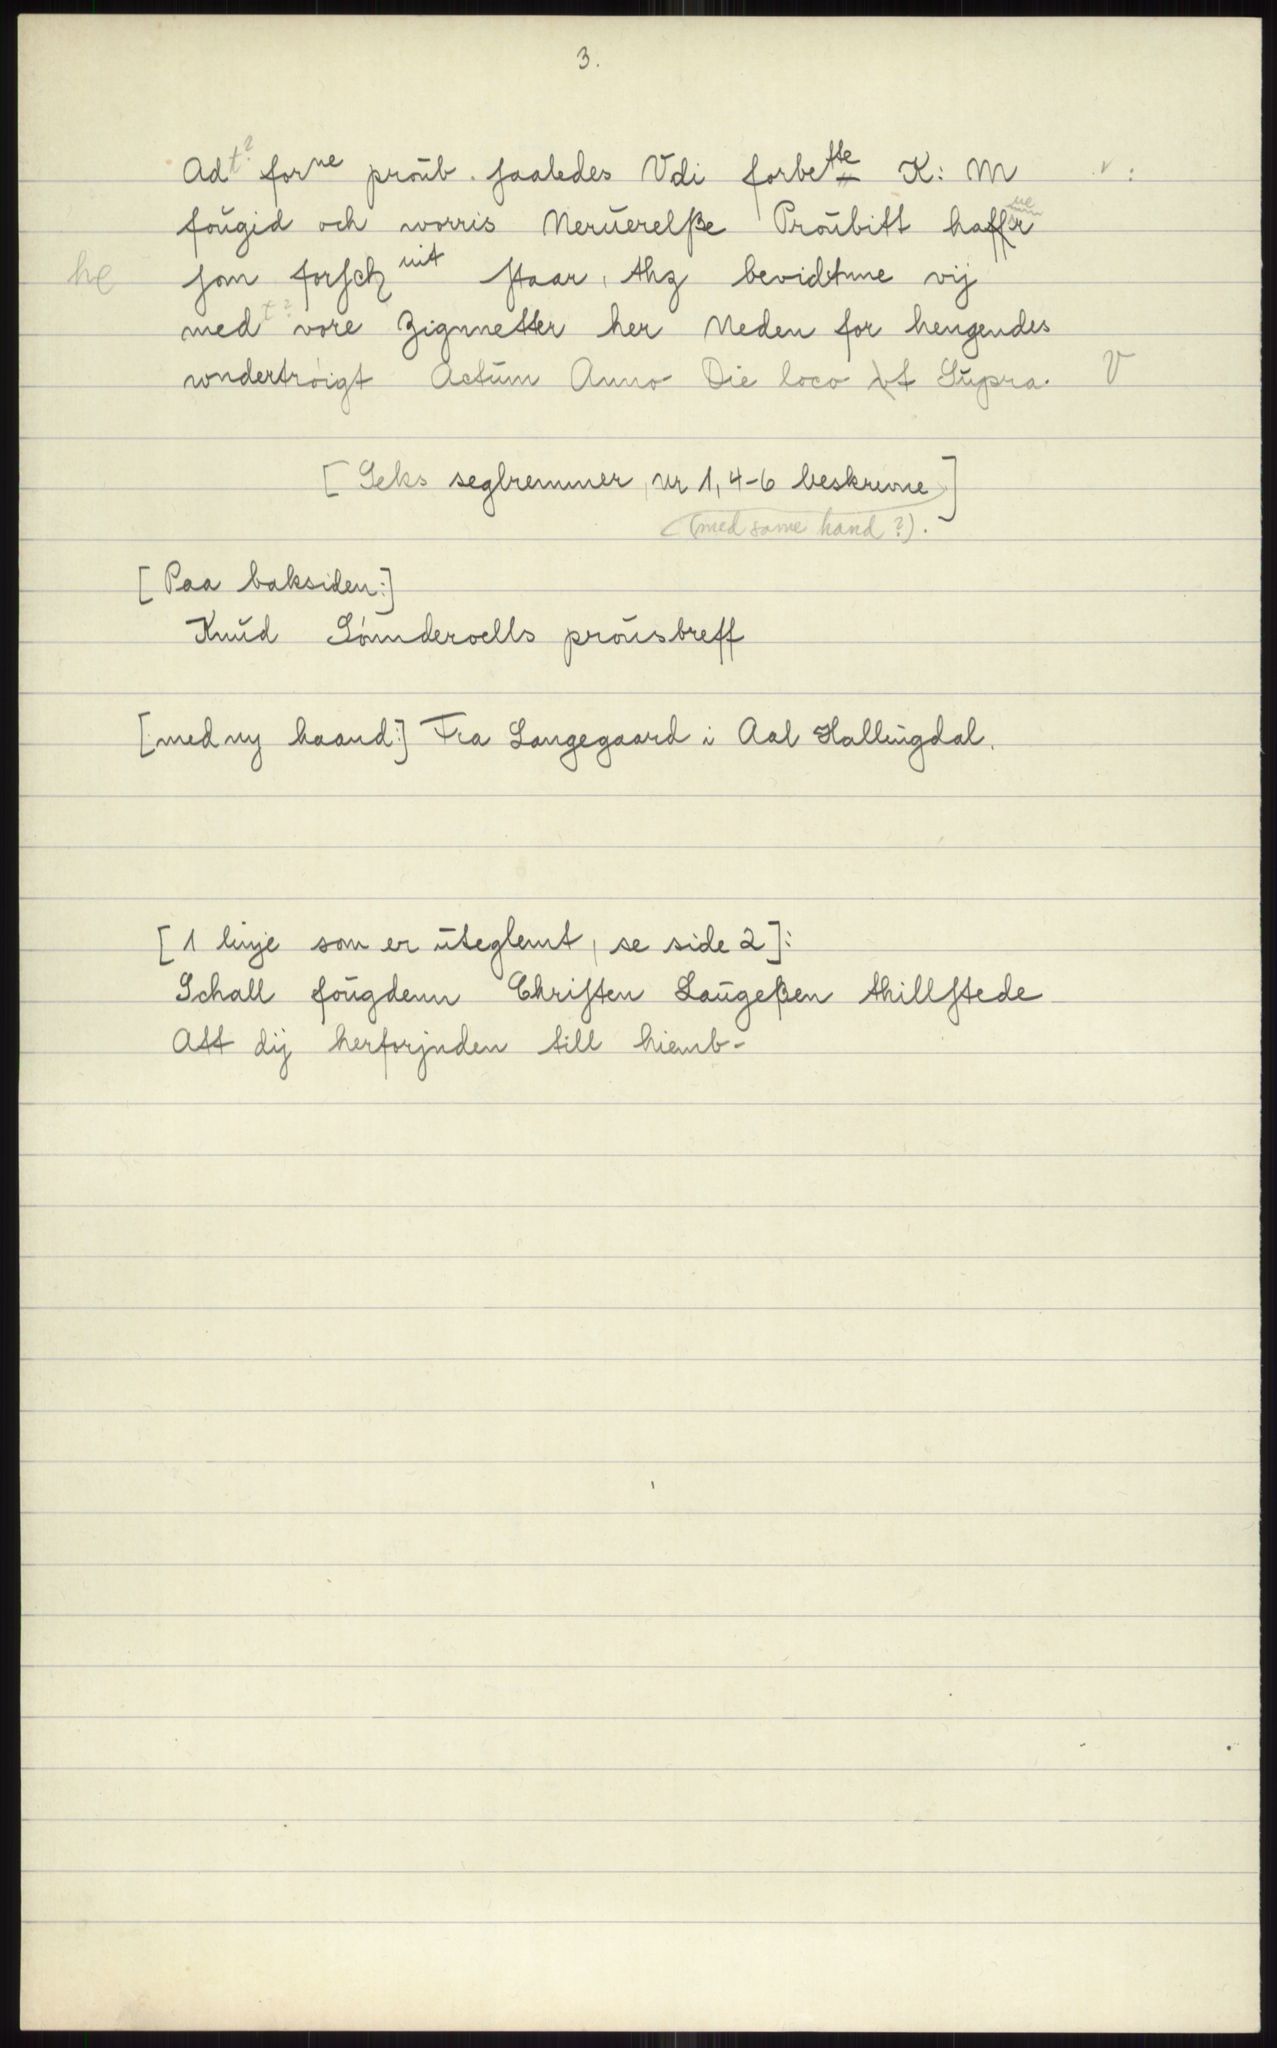 3.
Adt? forne proüb. saaledes Vdi forbe tte K: M
foügid och worris Nerüerelße Proübitt haffr
he som forsch nit staar, thz bevidtnne vij
med t? vore Zignnetter her Neden for hengendes
wndertröigt Actüm Anno Die loco vt Süpra. V
[Seks seglremmer, nr 1, 4-6 beskrevne]
(med same hand?).
[Paa baksiden:]
Knüd Sönnderoells proüsbreff
[med ny haand:] Fra Langegaard i Aal Hallingdal.
[1 linje som er üteglemt, se side 2]:
Schall foügdenn Christen Laügeßen thillstede
Att dij herforjnden till hiemb-